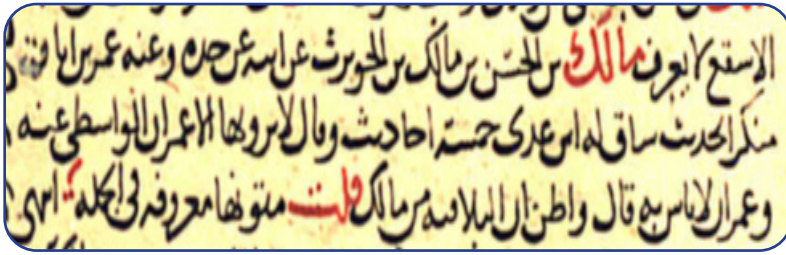 الاسقع لا يعرف مالك بن الحسن بن مالك بن الحويرث عن ابيه عن جده وعنه عمران بن ابان
منكر الحديث ساق له ابن عدى خمسة احاديث وقال لا يرويها الا عمران الواسطي عنه
وعمران لا باس به قال واظن ان البلاء فيه من مالك قلت متونها معروفة في الجملة انتهى